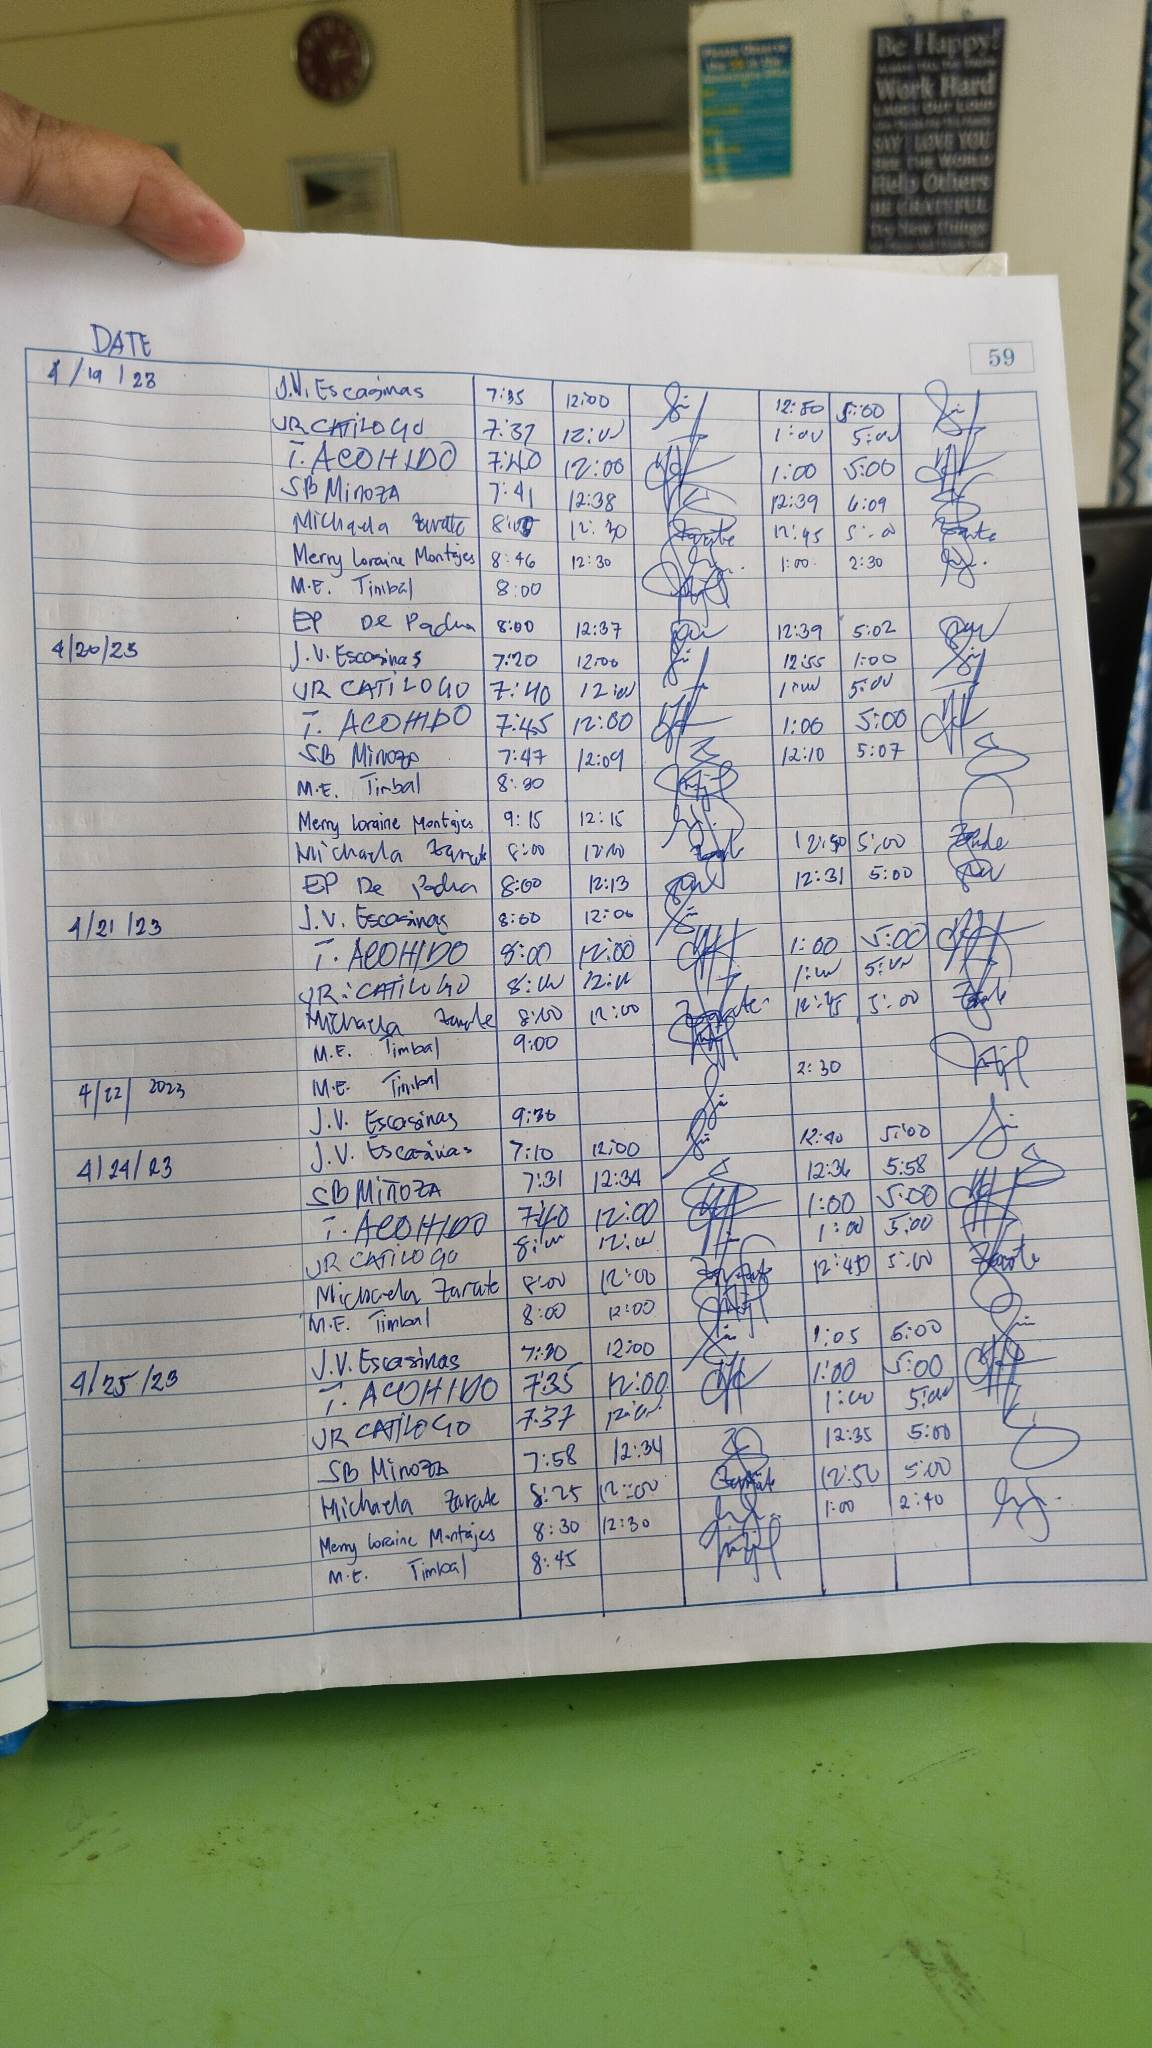 Be Happy!
Work Hard
LAUGH OUT LOUD
SAY I LOVE YOU
SEE THE WORLD
Help Others
BE GRATEFUL
Try New Things
DATE
59
4/19/23 J.V. Escasinas 7:35 12:00 12:50 5:00
JR CATILOGO 7:37 12:00 1:00 5:00
T. ACOHIDO 7:40 12:00 1:00 5:00
SB Minoza 7:41 12:38 12:39 6:09
Michaela Zarate 8:00 12:30 Zarate 12:45 5:00 Zarate
Merry Loraine Montajes 8:46 12:30 1:00 2:30
M.E. Timbal 8:00
EP De Padua 8:00 12:37 12:39 5:02
4/20/23 J.V. Escasinas 7:20 12:00 12:55 1:00
JR CATILOGO 7:40 12:00 1:00 5:00
T. ACOHIDO 7:45 12:00 1:00 5:00
SB Minoza 7:47 12:09 12:10 5:07
M.E. Timbal 8:30
Merry Loraine Montajes 9:15 12:15
Michaela Zarate 8:00 12:00 Zarate 12:50 5:00 Zarate
EP De Padua 8:00 12:13 12:31 5:00
4/21/23 J.V. Escasinas 8:00 12:00
T. ACOHIDO 8:00 12:00 1:00 5:00
JR. CATILOGO 8:00 12:00 1:00 5:00
Michaela Zarate 8:00 12:00 Zarate 12:45 5:00 Zarate
M.E. Timbal 9:00
4/22/2023 M.E. Timbal 2:30
J.V. Escasinas 9:30
4/24/23 J.V. Escasinas 7:10 12:00 12:40 5:00
SB MINOZA 7:31 12:34 12:36 5:58
T. ACOHIDO 7:40 12:00 1:00 5:00
JR CATILOGO 8:00 12:00 1:00 5:00
Michaela Zarate 8:00 12:00 Zarate 12:45 5:00 Zarate
M.E. Timbal 8:00 12:00
4/25/23 J.V. Escasinas 7:30 12:00 1:05 5:00
T. ACOHIDO 7:35 12:00 1:00 5:00
JR CATILOGO 7:37 12:00 1:00 5:00
SB Minoza 7:58 12:34 12:35 5:00
Michaela Zarate 8:25 12:00 Zarate 12:50 5:00
Merry Loraine Montajes 8:30 12:30 1:00 2:40
M.E. Timbal 8:45